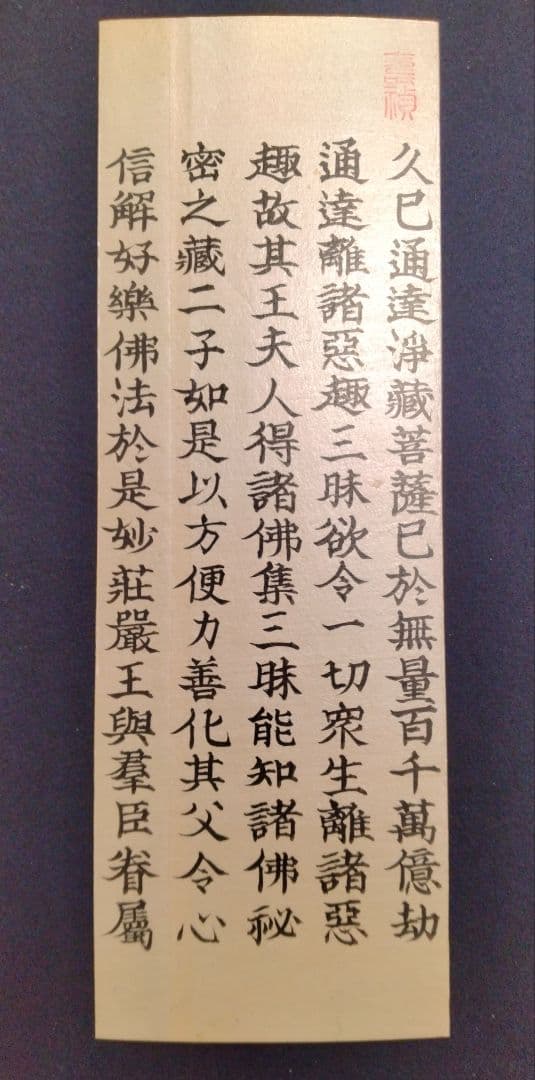 久已通達淨藏菩薩已於無量百千萬億劫
通達離諸惡趣三昧欲令一切眾生離諸惡
趣故其王夫人得諸佛集三昧能知諸佛祕
密之藏二子如是以方便力善化其父令心
信解好樂佛法於是妙莊嚴王與羣臣眷屬